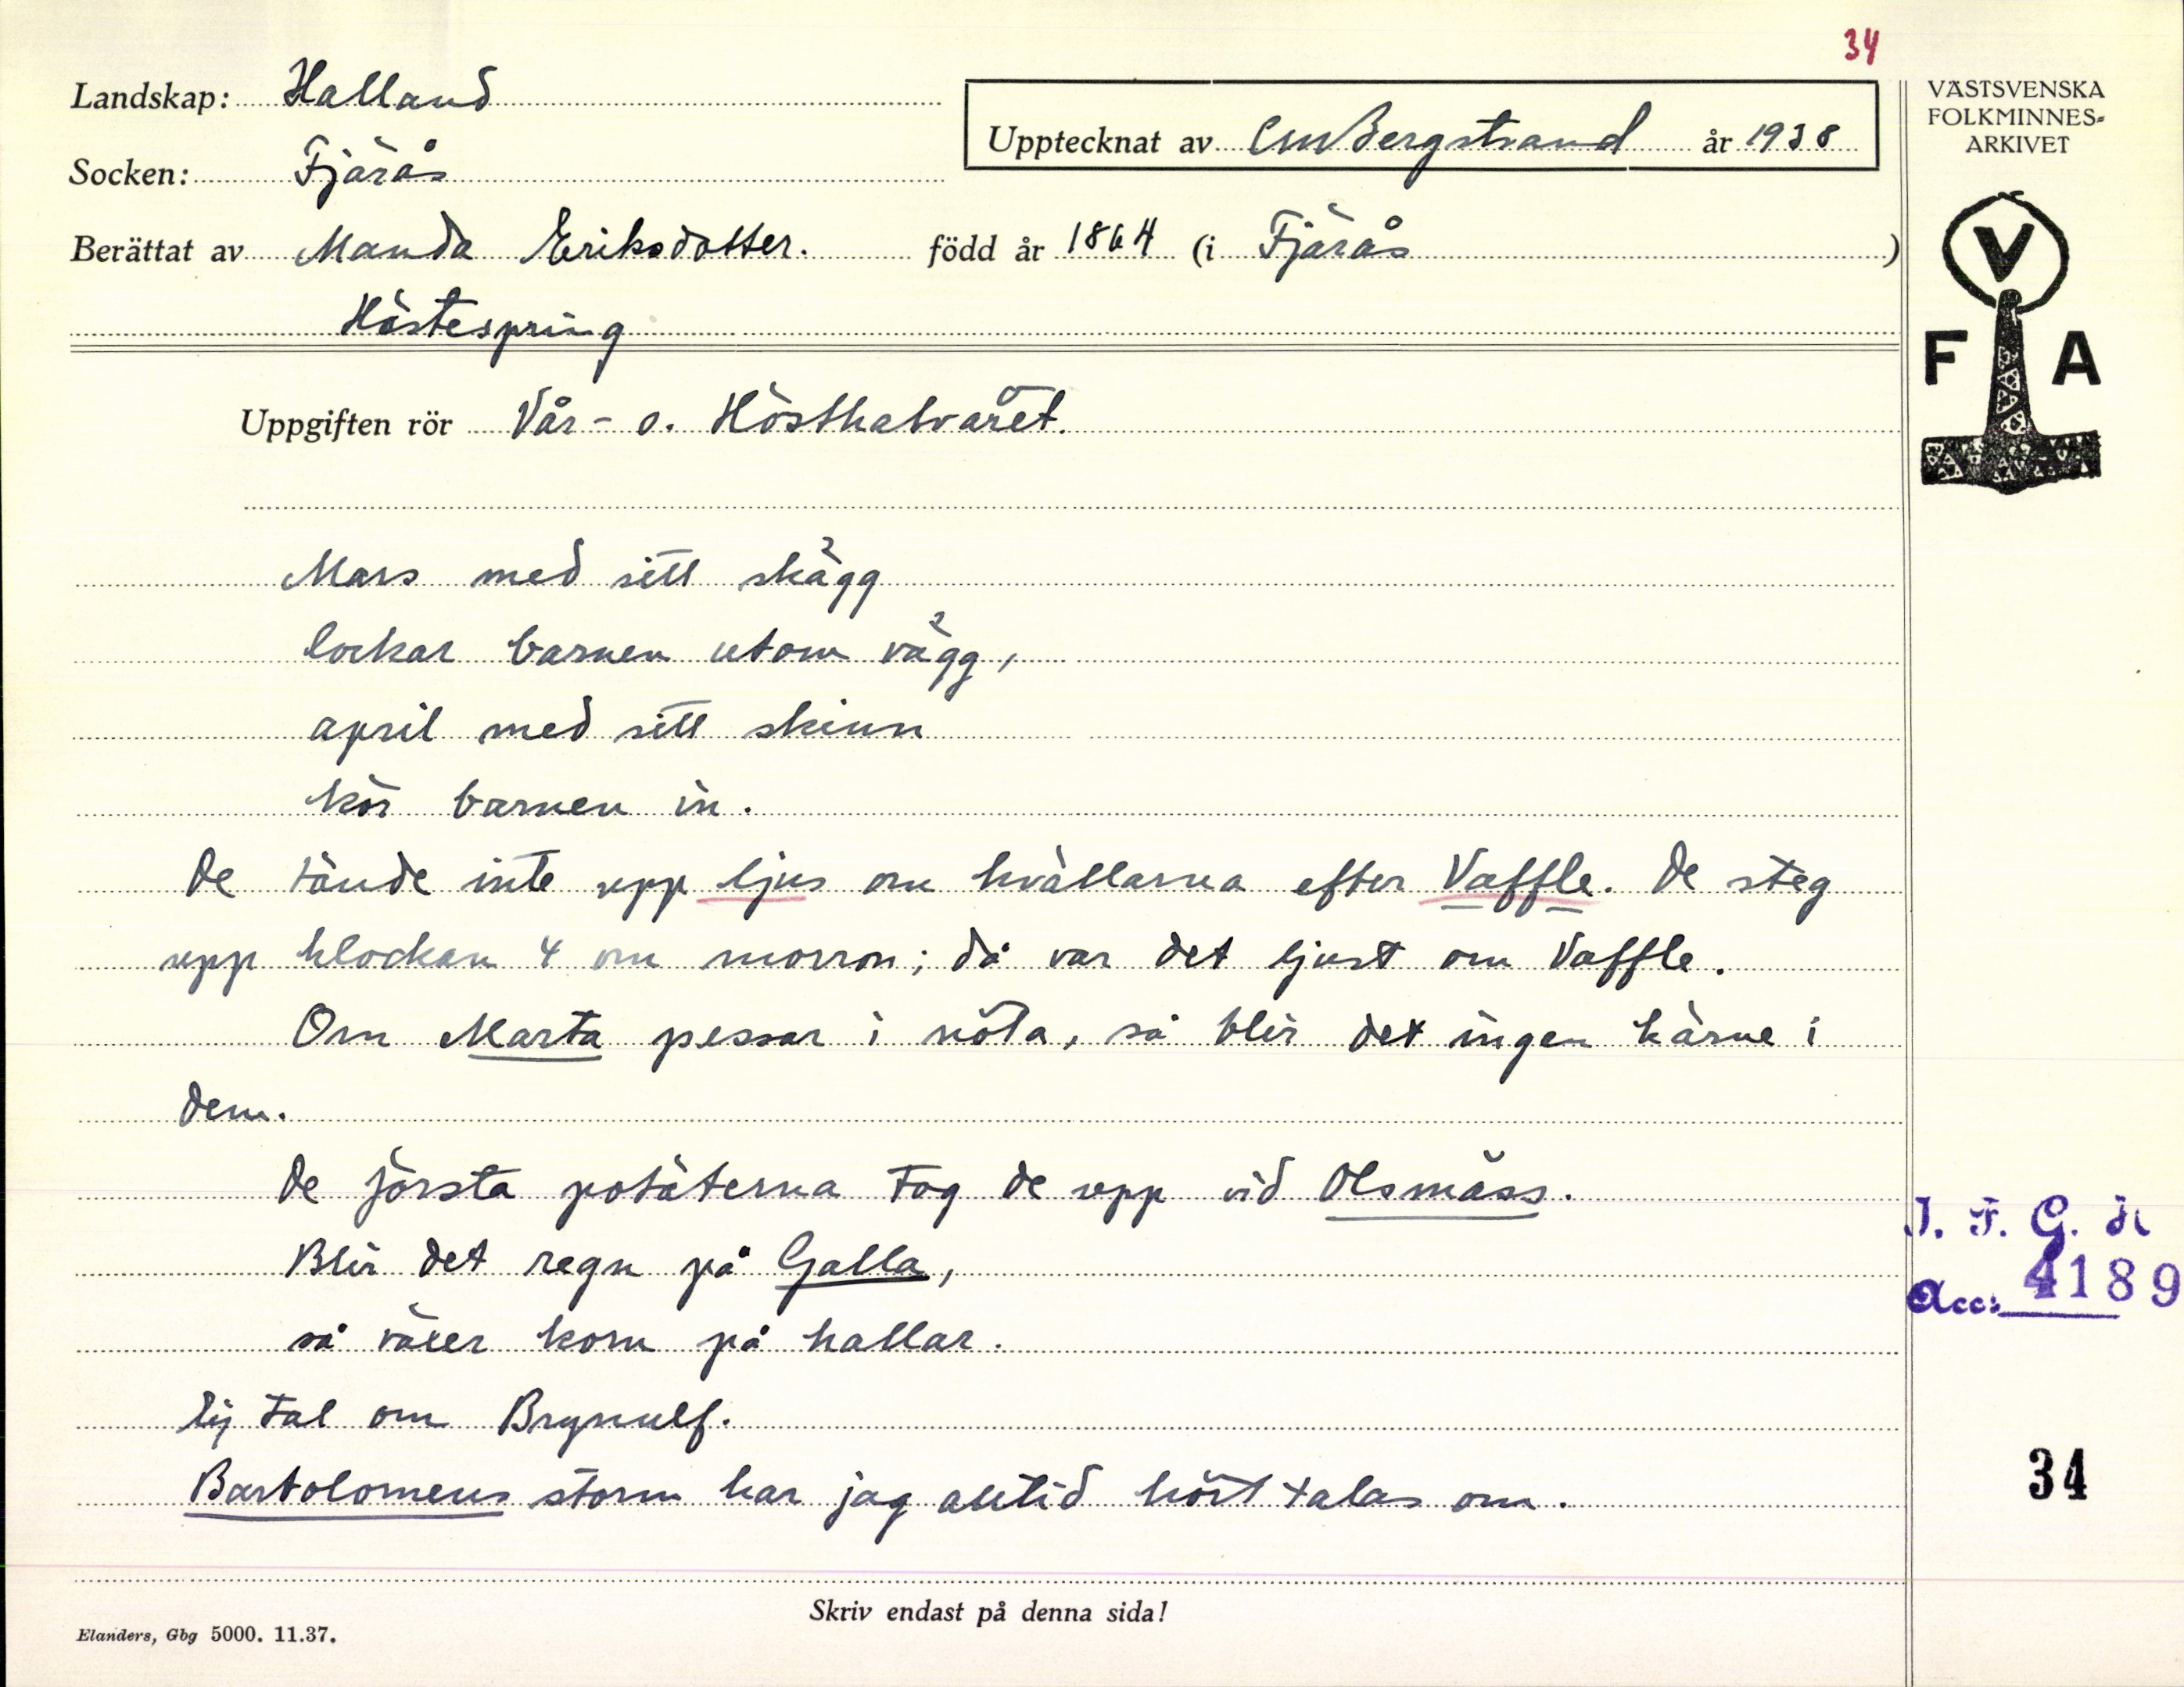 34
Landskap: Halland
Upptecknat av CMBergstrand år 1938
Socken: Fjärås
Berättat av Manda Eriksdotter. född år 1864 (i Fjärås)
Hästespring
Uppgiften rör Vår- o. Hösthalvåret.
Mars med sitt skägg
lockar barnen utom vägg,
april med sitt skinn
kör barnen in.
De tände inte upp ljus om kvällarna efter Vaffle. De steg
upp klockan 4 om morron; då var det ljust om Vaffle.
Om Marta pessar i nöta, så blir det ingen kärne i
dem.
De första potäterna tog de upp vid Olsmäss.
Blir det regn på Galla,
så växer korn på hallar.
Ej tal om Brynulf.
Bartolomeus storm har jag alltid hört talas om.
Skriv endast på denna sida!
Elanders, Gbg 5000. 11.37.
VÄSTSVENSKA
FOLKMINNES-
ARKIVET
V
F A
I. F. G. H
Acc: 4189
34